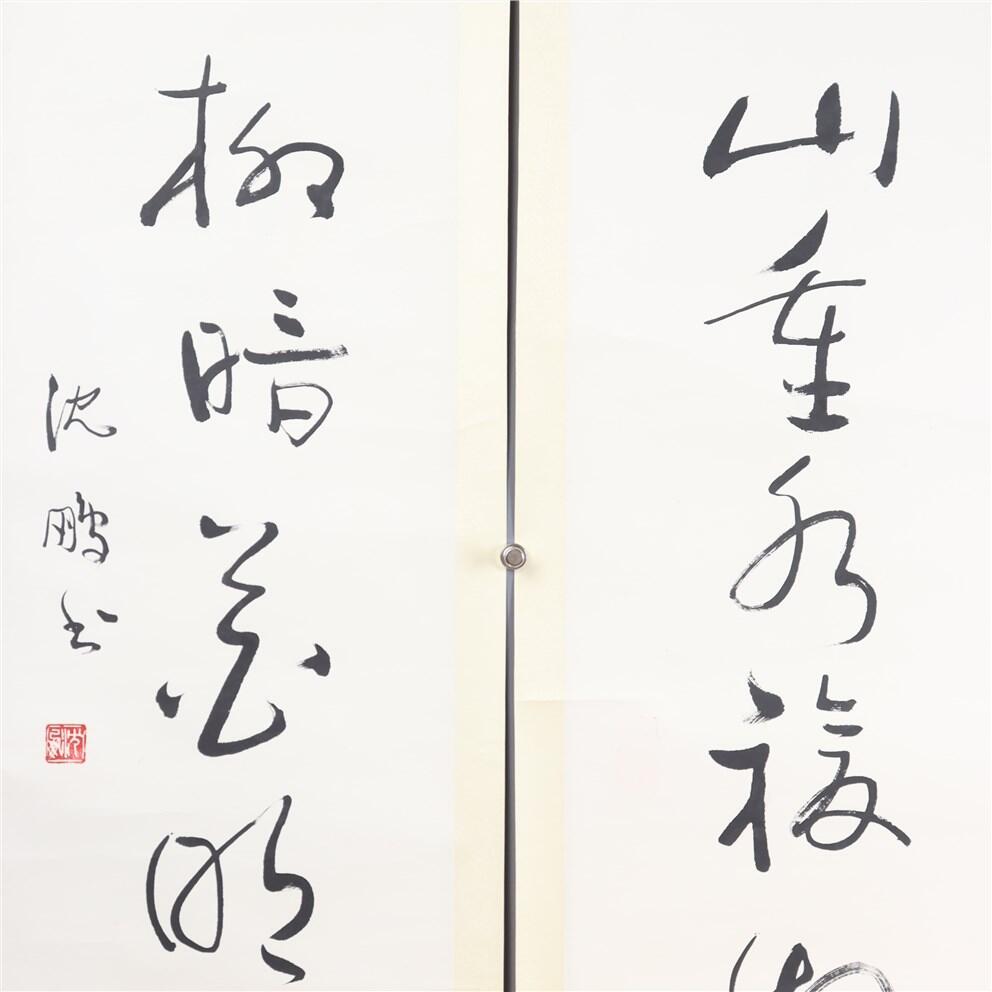 山重水複
柳暗花明
沈鵬书